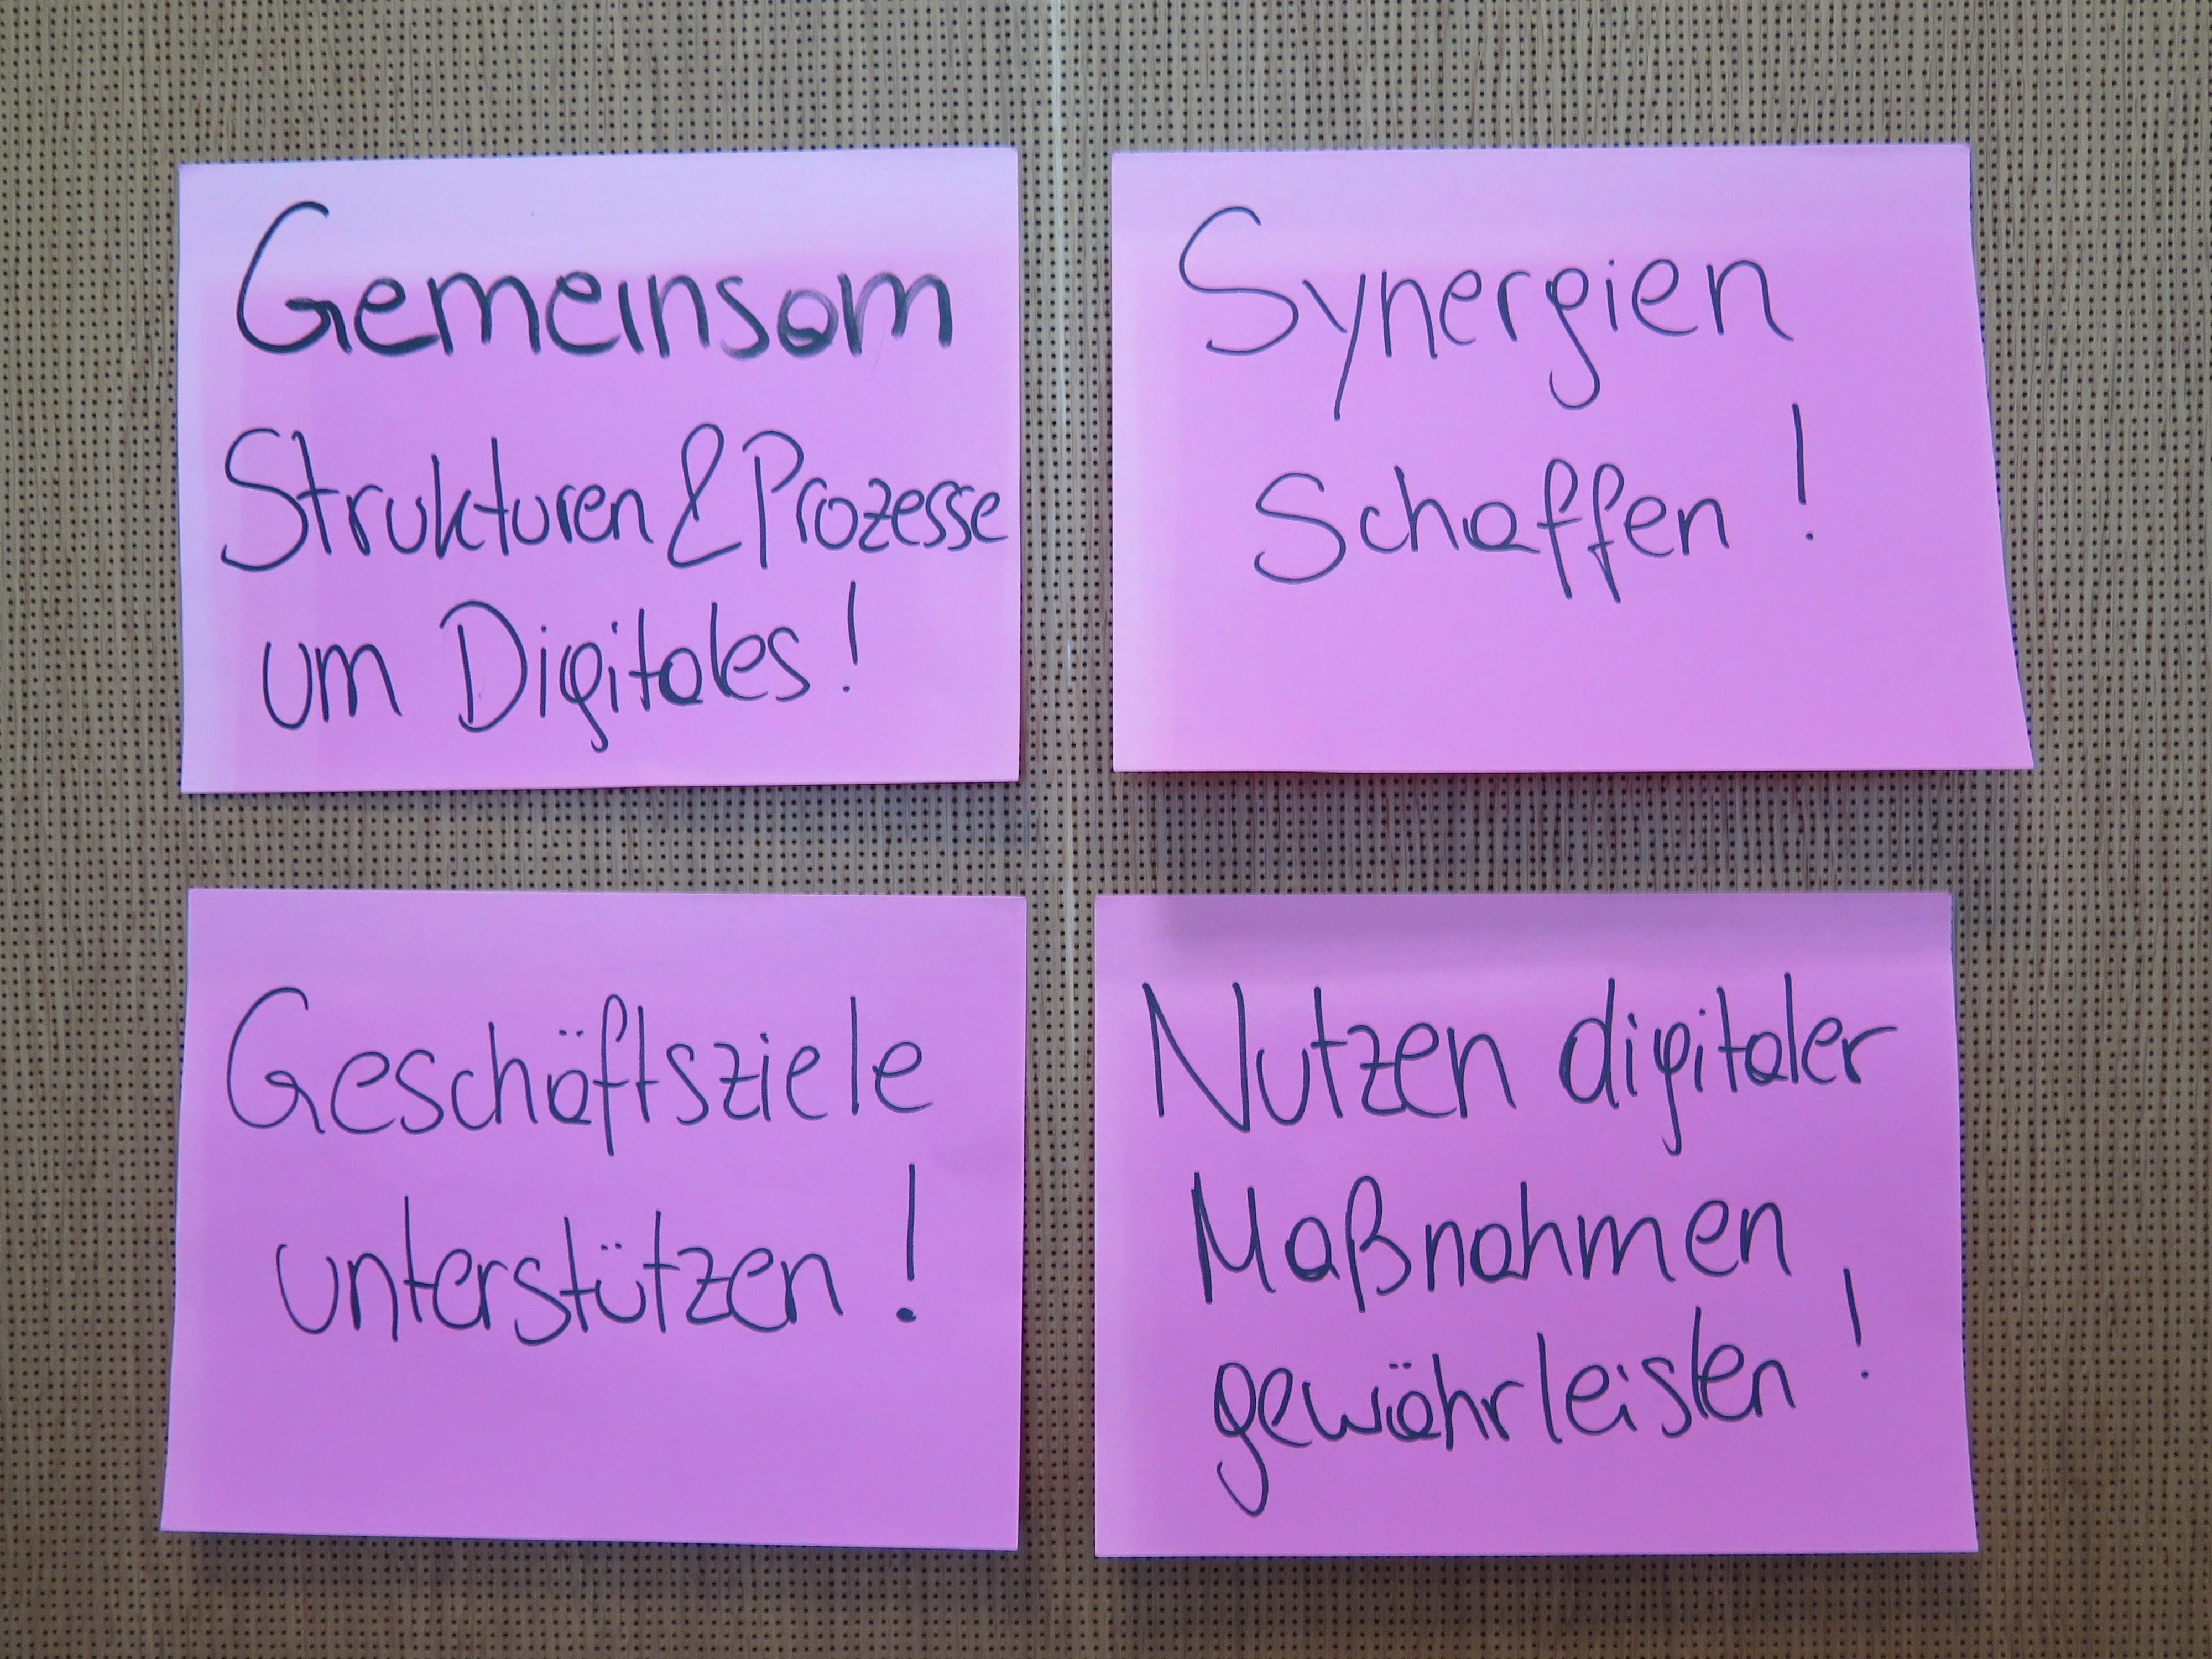 Gemeinsam
Strukturen & Prozesse
um Digitales!
Synergien
Schaffen!
Geschäftsziele
unterstützen!
Nutzen digitaler
Maßnahmen
gewährleisten!